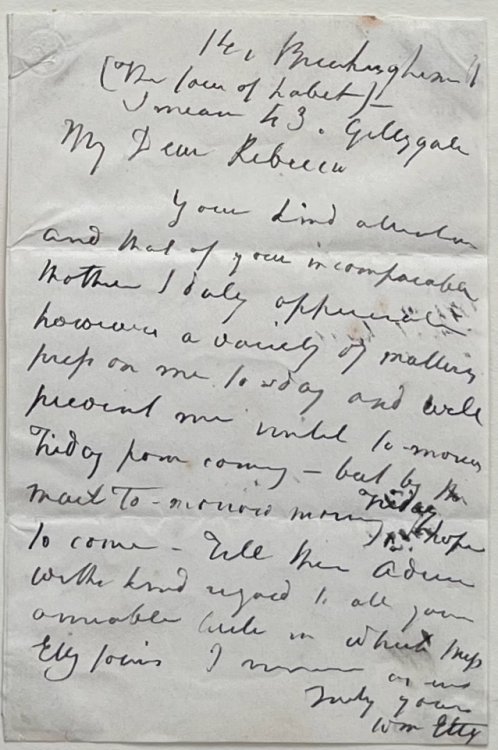 14, Buckingham St
(The force of habit) —
I mean 43. Gillygate
My Dear Rebecca
Your kind attention
and that of your incomparable
Mother I duly appreciate
however a variety of matters
press on me to-day and will
prevent me until to-morrow
Friday from coming — but by the
mail to-morrow morning Friday I hope
to come — Till then Adieu
With kind regard to all your
amiable circle in which Miss
Etty joins I remain as ever
Truly yours
Wm Etty